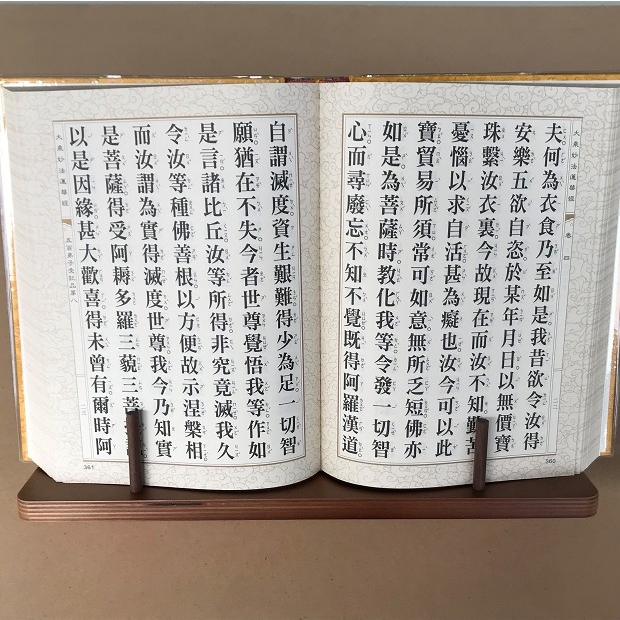 大乘妙法蓮華經
卷四
夫何為衣食乃至如是我昔欲令汝得
安樂五欲自恣於某年月日以無價寶
珠繫汝衣裏今故現在而汝不知勤苦
憂惱以求自活甚為癡也汝今可以此
寶貿易所須常可如意無所乏短佛亦
如是為菩薩時教化我等令發一切智
心而尋廢忘不知不覺既得阿羅漢道
360
自謂滅度資生艱難得少為足一切智
願猶在不失今者世尊覺悟我等作如
是言諸比丘汝等所得非究竟滅我久
令汝等種佛善根以方便故示涅槃相
而汝謂為實得滅度世尊我今乃知實
是菩薩得受阿耨多羅三藐三菩
以是因緣甚大歡喜得未曾有爾時阿
大乘妙法蓮華經
五百弟子受記品第八
361